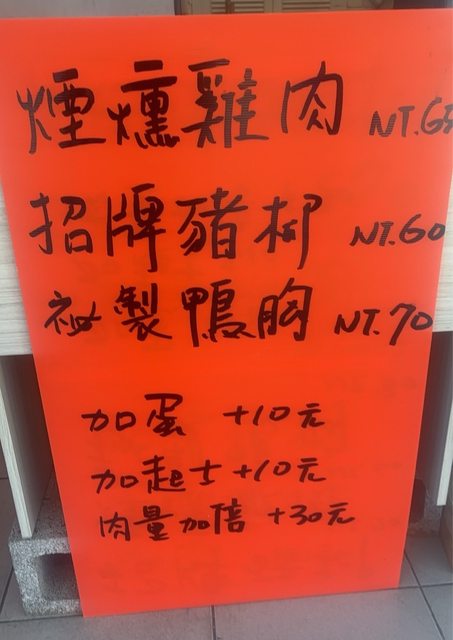 煙燻雞肉 NT.65
招牌豬柳 NT.60
祕製鴨胸 NT.70
加蛋 +10元
加起士 +10元
肉量加倍 +30元